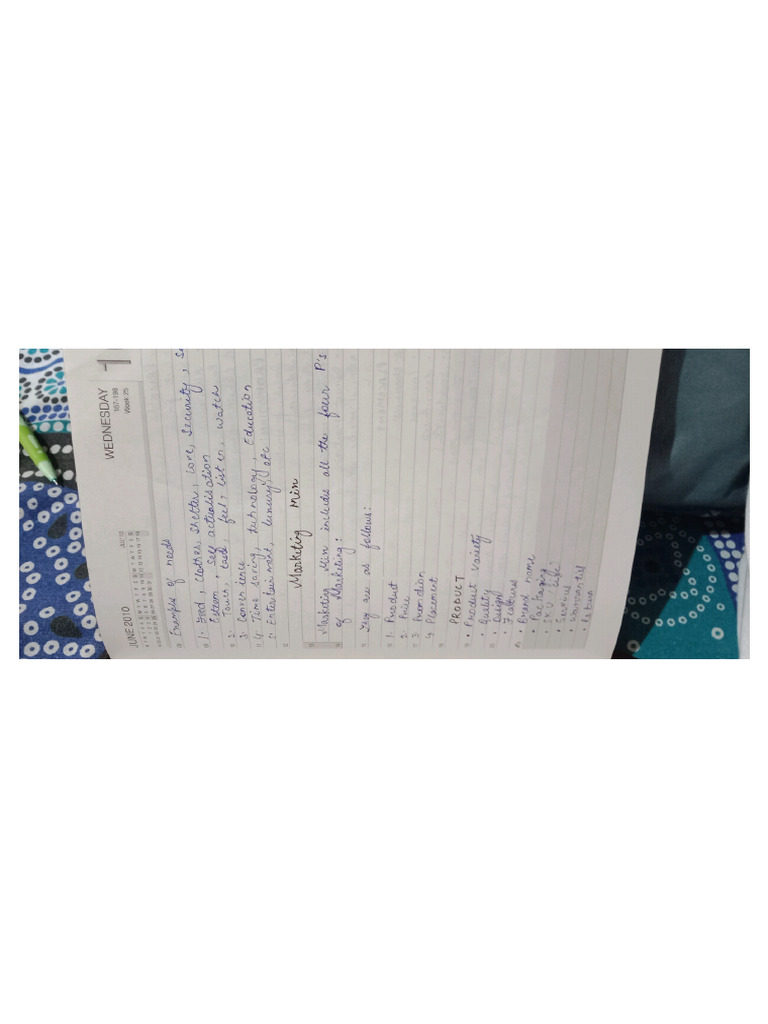 JUNE 2010
WEDNESDAY
167-198
Week 25
Example of needs
1. Food, Clothes, Shelter, Love, Security,
Esteem, Self actualisation
2. Touch, taste, feel, listen, watch
3. Convenience
4. Time saving, technology, Education
5. Entertainment, luxury, etc
Marketing Mix
Marketing Mix include all the four P's
of Marketing:
They are as follows:
1. Product
2. Price
3. Promotion
4. Placement
PRODUCT
• Product Variety
• Quality
• Design
• Features
• Brand name
• Packaging
• Services
• Return